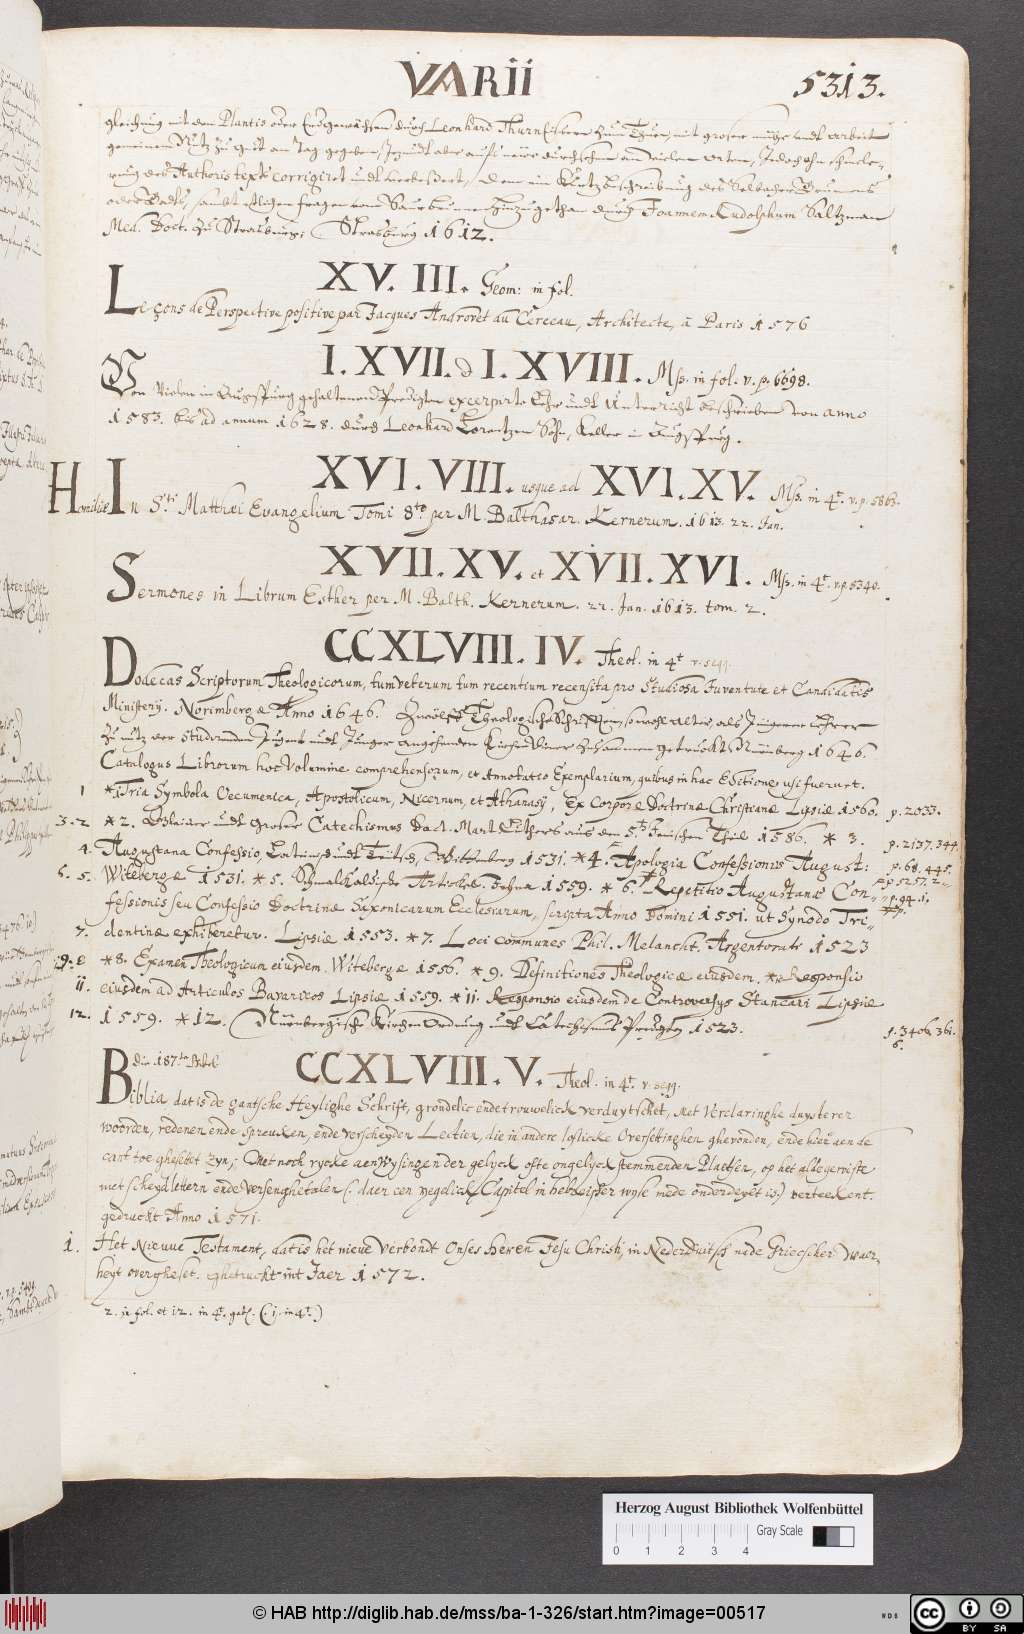 VARii 5313.
gleichnus mit dem Plantis oder Erdgewächsen durch Leonhard Thurneissern zum Thurn, mit grosser mühe undt Arbeit
gemeinem Nutz zu gut an Tag gegeben,
des Authoris text corrigiret undt verbessert,
durch Joannem Rudolphum Saltzman
Med. Doct. zu Strasburg. Strasburg 1612.
XV. III. Geom: in fol.
Leçons de Perspective positive par Jacques Androvet du Cerceau, Architecte, à Paris 1576
I. XVII. I. XVIII. Mss. in fol. v. p. 6698.
Von Vielen in Augspurg gehaltenen Predigten excerpirte Lehr undt Unterricht beschrieben von anno
1583. bis ad annum 1628. durch Leonhard Lorentzen Sohn, Keller in Augspurg.
XVI. VIII. usque ad XVI. XV. Mss. in 4t. v. p. 5863.
Homiliæ In Sti Matthæi Evangelium Tomi 8to per M. Balthasar. Kernerum. 1613. 22. Jan.
XVII. XV. et XVII. XVI. Mss. in 4t. v. p. 5340.
Sermones in Librum Esther per M. Balth. Kernerum. 22. Jan. 1613. tom. 2.
CCXLVIII. IV. Theol. in 4t v. seqq.
Dodecas Scriptorum Theologicorum, tum veterum tum recentium recensita pro Studiosa Juventute et Candidatis
Ministerij. Norimbergæ Anno 1646. Zwölff Theologische Schrifften, sowohl alter als Jüngerer Lehrer
zu nutz der studirenden Jugent undt Junger angehenden Kirchendiener zusammen getruckt, Nürnberg 1646.
Catalogus Librorum hoc Volumine comprehensorum, et Annotatio Exemplarium, quibus in hac Editione usi fuerunt.
1 *1. Tria Symbola Oecumenica, Apostolicum, Nicenum, et Athanasij, Ex Corpore Doctrinæ Christianæ Lipsiæ 1560. p. 2033.
3. 2 *2. Kleiner undt grosser Catechismus Doct. Mart. Luthers aus dem 5ten Jenischen Theil 1586. * 3. p. 2137. 344.
4. Augustana Confessio, Lateinisch undt Teutsch, Wittenberg 1531. *4. Apologia Confessionis August: p. 68. 445.
6. 5. Witebergæ 1531. *5. Schmalkaldische Artickel. 1559. * 6. Repetitio Augustanæ Con- p. 94. 1.
fessionis seu Confessio Doctrinæ Saxonicarum Ecclesiarum, scripta Anno Domini 1551. ut Synodo Tri-
7. dentinæ exhiberetur. Lipsiæ 1553. *7. Loci communes Phil. Melancht. Argentorati 1523
9. 8 *8. Examen Theologicum eiusdem. Witebergæ 1556. *9. Definitiones Theologicæ eiusdem, *10. Responsio
11. eiusdem ad Articulos Bavaricos Lipsiæ 1559. *11. Responsio eiusdem de Controversijs Stancari Lipsiæ
12. 1559. *12. Nürnbergische Kirchen Ordnung undt Catechismus Predigten 1523. p. 3406. 361.
6.
die 187te Bibel
CCXLVIII. V. Theol. in 4t. v. seqq.
Biblia dat is de gantsche Heylighe Schrift, grondelic ende trouwelick verduytschet, Met Verclaringhe duysterer
woorden, redenen ende spreucken, ende verscheyden Lectien, die in andere loflicke Oversettinghen ghevonden, ende hier aen de
cant toe ghesettet zyn; Met noch rycke aenwysingen der gelyck ofte ongelyck stemmenden Plaetsen, op het allegewiste
met scheydlettern ende Versenghetalen (: daer een yegelick Capitel in hebreischer wyse mede onderdeylt is) verteekent.
gedruckt Anno 1571.
1. Het Nieuwe Testament, dat is het nieuwe Verbondt Onses Heren Jesu Christi, in Nederduitsch nade Griecscher Waer,
heyt overgheset. ghedruckt int Jaer 1572.
2. in fol. et 12. in 4t. geb. (: 1. in 4t.)
Herzog August Bibliothek Wolfenbüttel
Gray Scale
0 1 2 3 4
© HAB http://diglib.hab.de/mss/ba-1-326/start.htm?image=00517
cc BY SA